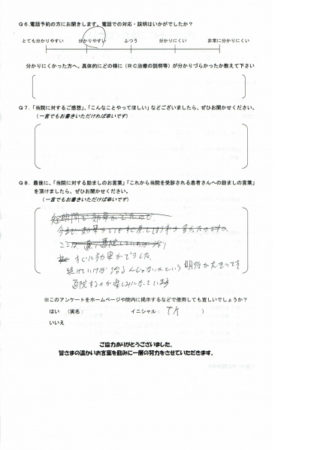 Q6.電話予約の方にお聞きします。電話での対応・説明はいかがでしたか？
とても分かりやすい 分かりやすい ふつう 分かりにくい 非常に分かりにくい
分かりにくかった方へ、具体的にどの様に（RC治療の説明等）が分かりづらかったか教えて下さい
Q7.「当院に対するご感想」、「こんなことやってほしい」などございましたら、ぜひお聞かせください。
（一言でもお書きいただければ幸いです）
Q8.最後に、「当院に対する励ましのお言葉」「これから当院を受診される患者さんへの励ましの言葉」
を頂けましたら、ぜひお聞かせください。
（一言でもお書きいただければ幸いです）
短時間で効果がでたので
すぐに効果がでました。
通っていけば治るんじゃないかという期待が大きいです
通院するのが楽しみになっています
※このアンケートをホームページや院内に掲示するなどで使用しても宜しいでしょうか？
はい （実名： イニシャル： T.K ）
いいえ
ご協力ありがとうございました。
皆さまの温かいお言葉を励みに一層の努力をさせていただきます。